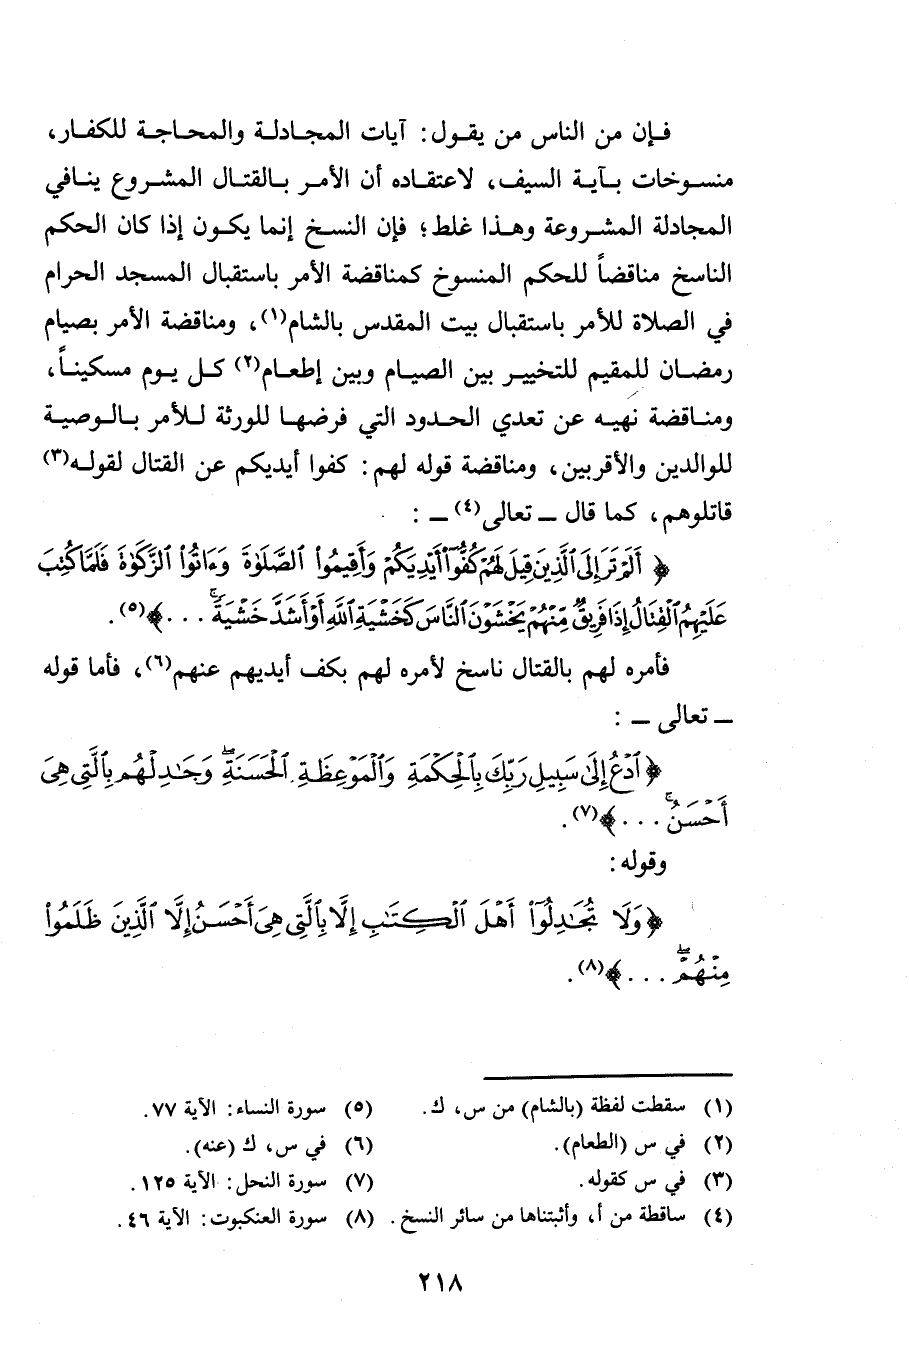 فإن من الناس من يقول: آيات المجادلة والمحاجة للكفار،
منسوخات بآية السيف، لاعتقاده أن الأمر بالقتال المشروع ينافي
المجادلة المشروعة وهذا غلط؛ فإن النسخ إنما يكون إذا كان الحكم
الناسخ مناقضاً للحكم المنسوخ كمناقضة الأمر باستقبال المسجد الحرام
في الصلاة للأمر باستقبال بيت المقدس بالشام(١)، ومناقضة الأمر بصيام
رمضان للمقيم للتخيير بين الصيام وبين إطعام(٢) كل يوم مسكيناً،
ومناقضة نهيه عن تعدي الحدود التي فرضها للورثة للأمر بالوصية
للوالدين والأقربين، ومناقضة قوله لهم: كفوا أيديكم عن القتال لقوله(٣)
قاتلوهم، كما قال ــ تعالى(٤) ــ :
﴿ أَلَمْ تَرَ إِلَى ٱلَّذِينَ قِيلَ لَهُمْ كُفُّوٓا۟ أَيْدِيَكُمْ وَأَقِيمُوا۟ ٱلصَّلَوٰةَ وَءَاتُوا۟ ٱلزَّكَوٰةَ فَلَمَّا كُتِبَ
عَلَيْهِمُ ٱلْقِتَالُ إِذَا فَرِيقٌ مِّنْهُمْ يَخْشَوْنَ ٱلنَّاسَ كَخَشْيَةِ ٱللَّهِ أَوْ أَشَدَّ خَشْيَةًۚ . . . ﴾(٥).
فأمره لهم بالقتال ناسخ لأمره لهم بكف أيديهم عنهم(٦)، فأما قوله
ــ تعالى ــ :
﴿ ٱدْعُ إِلَىٰ سَبِيلِ رَبِّكَ بِٱلْحِكْمَةِ وَٱلْمَوْعِظَةِ ٱلْحَسَنَةِۖ وَجَـٰدِلْهُم بِٱلَّتِى هِىَ
أَحْسَنُۚ . . . ﴾(٧).
وقوله:
﴿ وَلَا تُجَـٰدِلُوٓا۟ أَهْلَ ٱلْكِتَـٰبِ إِلَّا بِٱلَّتِى هِىَ أَحْسَنُ إِلَّا ٱلَّذِينَ ظَلَمُوا۟
مِنْهُمْۖ . . . ﴾(٨).
(١) سقطت لفظة (بالشام) من س، ك.
(٢) في س (الطعام).
(٣) في س كقوله.
(٤) ساقطة من أ، وأثبتناها من سائر النسخ.
(٥) سورة النساء: الآية ٧٧.
(٦) في س، ك (عنه).
(٧) سورة النحل: الآية ١٢٥.
(٨) سورة العنكبوت: الآية ٤٦.
٢١٨